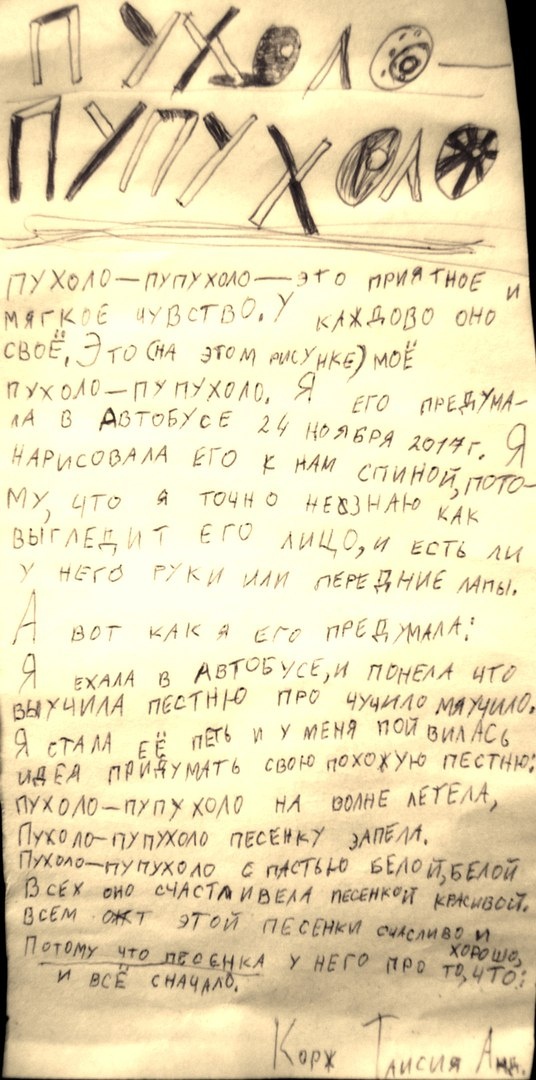 ПУХОЛО—
ПУПУХОЛО
ПУХОЛО—ПУПУХОЛО—ЭТО ПРИЯТНОЕ И
МЯГКОЕ ЧУВСТВО. У КАЖДОВО ОНО
СВОЁ. ЭТО (НА ЭТОМ РИСУНКЕ) МОЁ
ПУХОЛО—ПУПУХОЛО. Я ЕГО ПРЕДУМА-
ЛА В АВТОБУСЕ 24 НОЯБРЯ 2017г. Я
НАРИСОВАЛА ЕГО К НАМ СПИНОЙ, ПОТО-
МУ, ЧТО Я ТОЧНО НЕ ЗНАЮ КАК
ВЫГЛЕДИТ ЕГО ЛИЦО, И ЕСТЬ ЛИ
У НЕГО РУКИ ИЛИ ПЕРЕДНИЕ ЛАПЫ.
А ВОТ КАК Я ЕГО ПРЕДУМАЛА:
Я ЕХАЛА В АВТОБУСЕ, И ПОНЕЛА ЧТО
ВЫУЧИЛА ПЕСТНЮ ПРО ЧУЧИЛО МЯУЧИЛО.
Я СТАЛА ЕЁ ПЕТЬ И У МЕНЯ ПОЙВИЛАСЬ
ИДЕЯ ПРИДУМАТЬ СВОЮ ПОХОЖУЮ ПЕСТНЮ:
ПУХОЛО—ПУПУХОЛО НА ВОЛНЕ ЛЕТЕЛА,
ПУХОЛО—ПУПУХОЛО ПЕСЕНКУ ЗАПЕЛА.
ПУХОЛО—ПУПУХОЛО С ПАСТЬЮ БЕЛОЙ, БЕЛОЙ
ВСЕХ ОНО СЧАСТЛИВЕЛА ПЕСЕНКОЙ КРАСИВОЙ.
ВСЕМ ОТ ЭТОЙ ПЕСЕНКИ СЧАСЛИВО И
ХОРОШО,
ПОТОМУ ЧТО ПЕСЕНКА У НЕГО ПРО ТО, ЧТО:
И ВСЁ СНАЧАЛО.
КОРЖ ТАИСИЯ АНД.